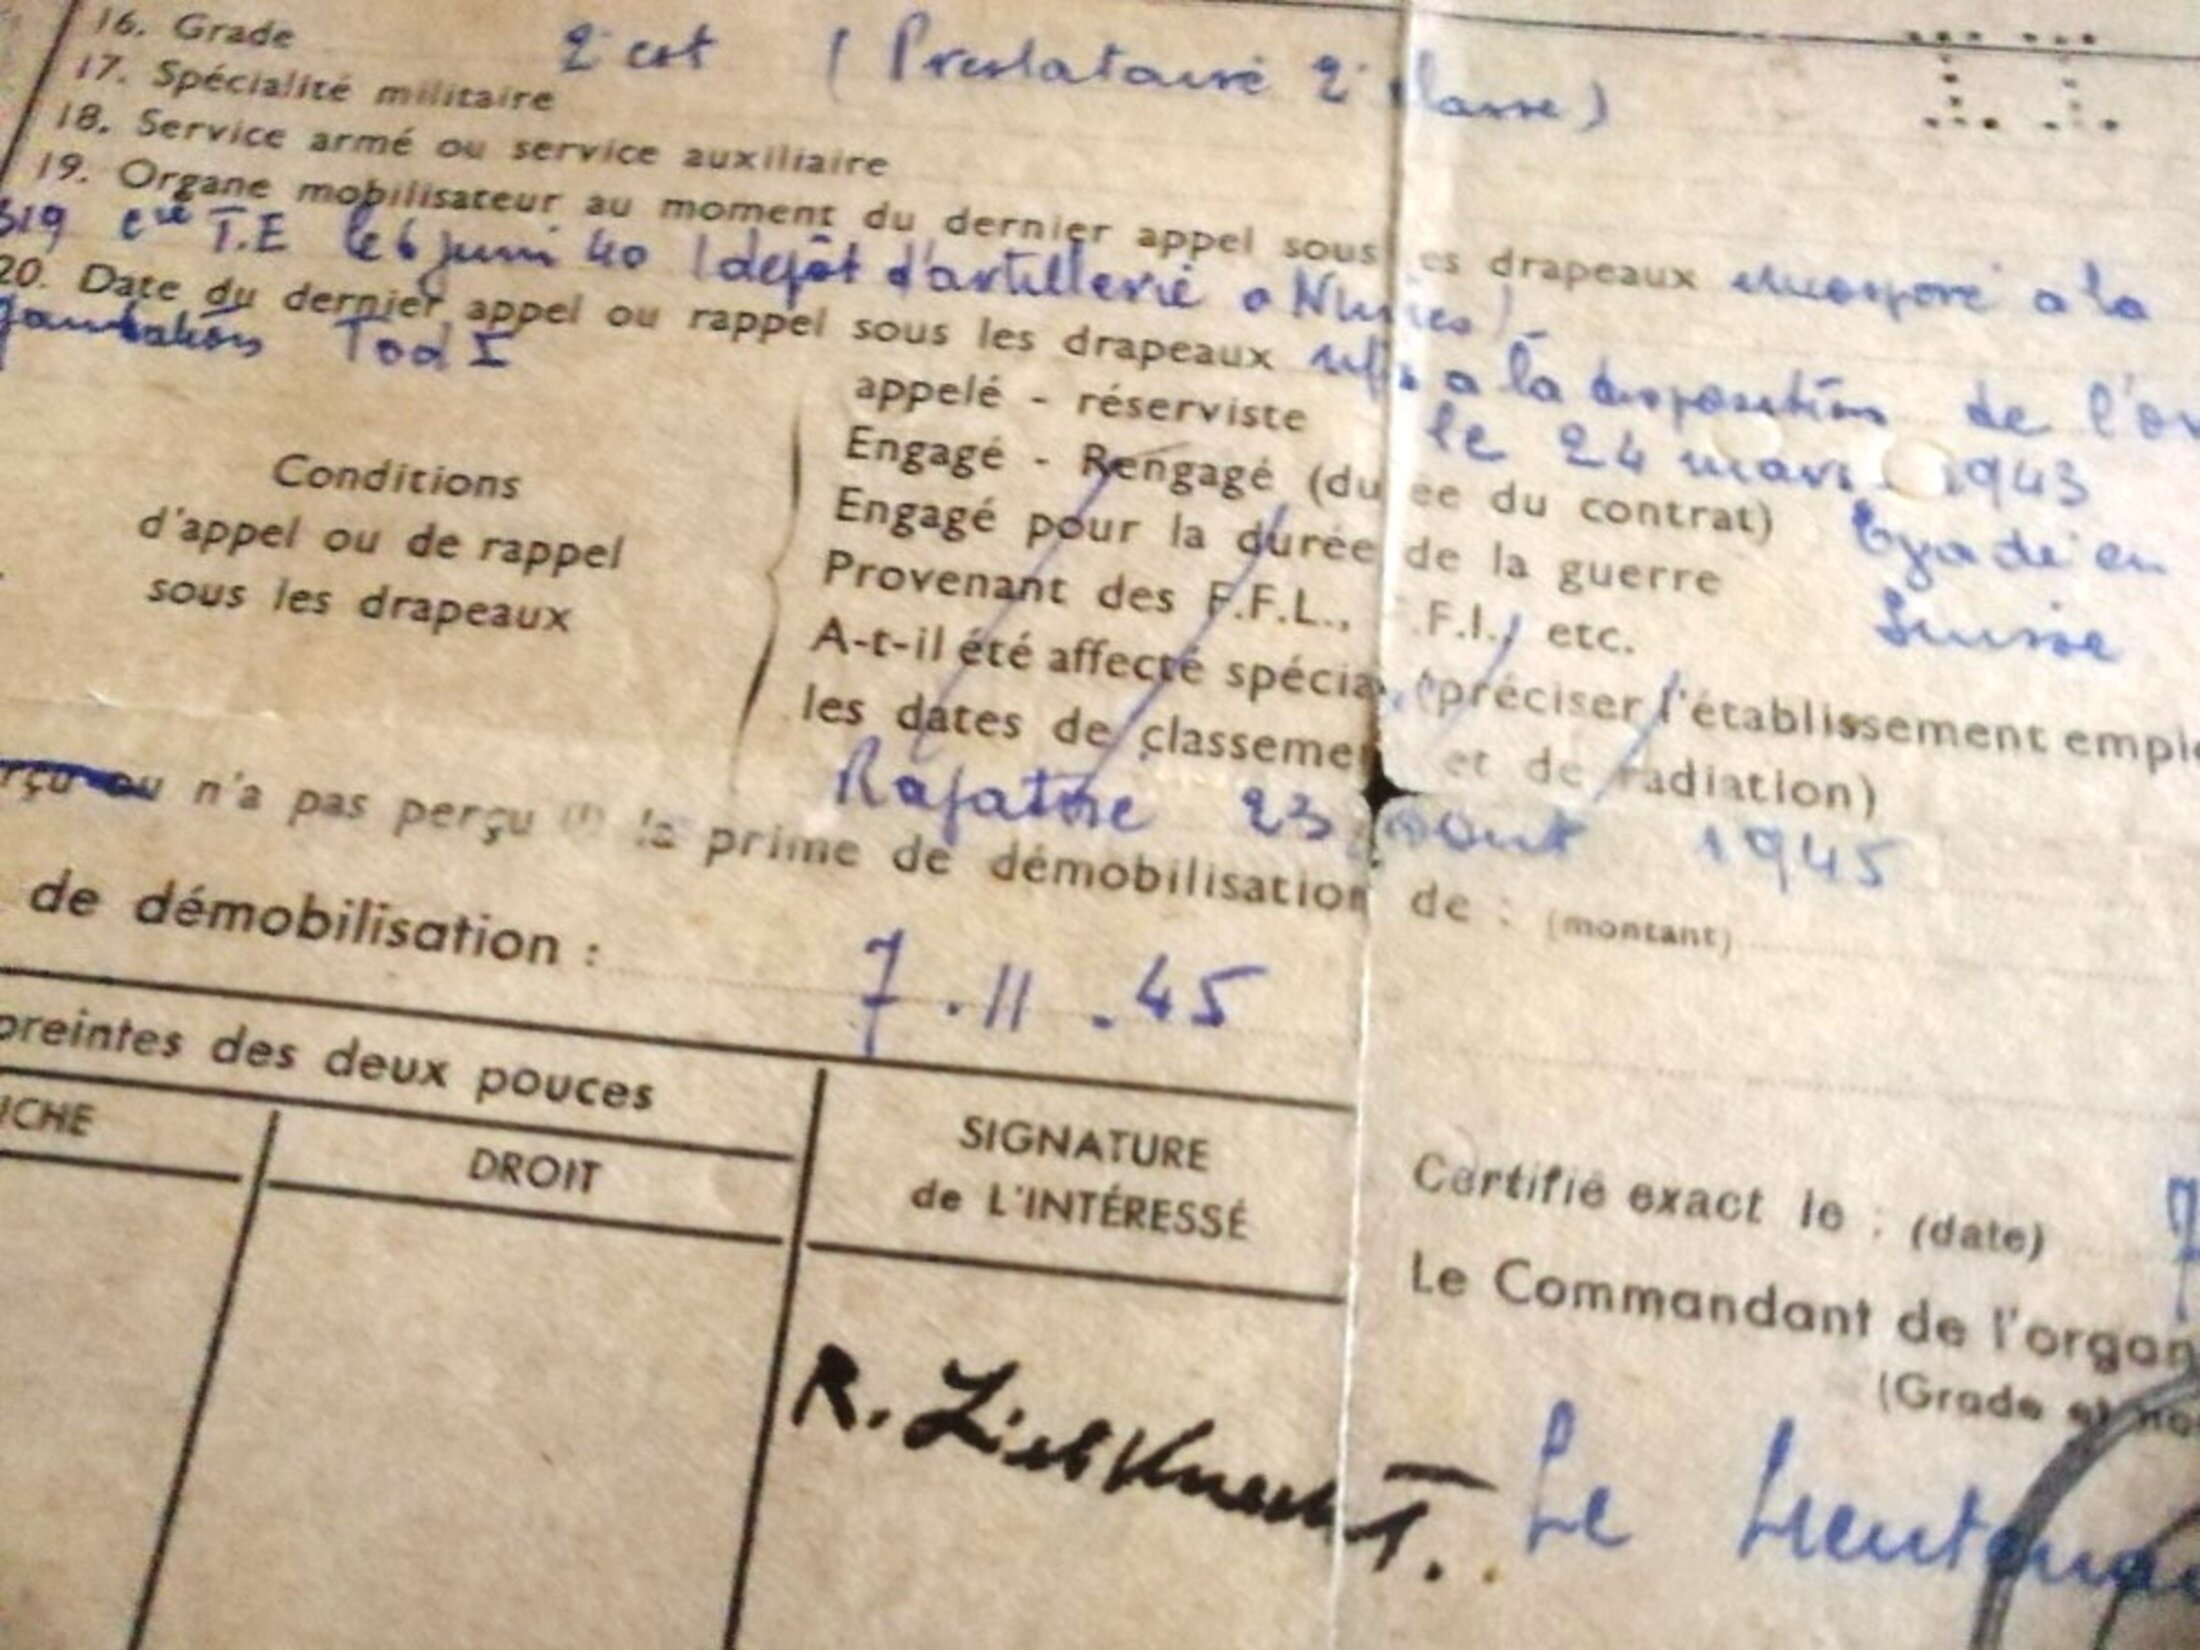 16. Grade
2e cat (Prestataire 2e classe)
17. Spécialité militaire
18. Service armé ou service auxiliaire
19. Organe mobilisateur au moment du dernier appel sous es drapeaux incorporé a la
319 cie T.E le 6 juin 40 (depôt d'artillerie a Nimes)
20. Date du dernier appel ou rappel sous les drapeaux mis a la disposition de l'or
ganisation Tod I
le 24 mars 1943
Evadé en
Suisse
Conditions
d'appel ou de rappel
sous les drapeaux
appelé - réserviste
Engagé - Rengagé (du ée du contrat)
Engagé pour la durée de la guerre
Provenant des F.F.L., F.F.I., etc.
A-t-il été affecté spécia (préciser l'établissement emplo
les dates de classeme et de radiation)
Rapatrié 23 aout 1945
rçu ou n'a pas perçu (1) la prime de démobilisation de : (montant)
de démobilisation : 7.11.45
preintes des deux pouces
UCHE
DROIT
SIGNATURE
de L'INTÉRESSÉ
R. Liebknecht.
Certifié exact le : (date) 7
Le Commandant de l'organ
(Grade et no
Le Lieutenan